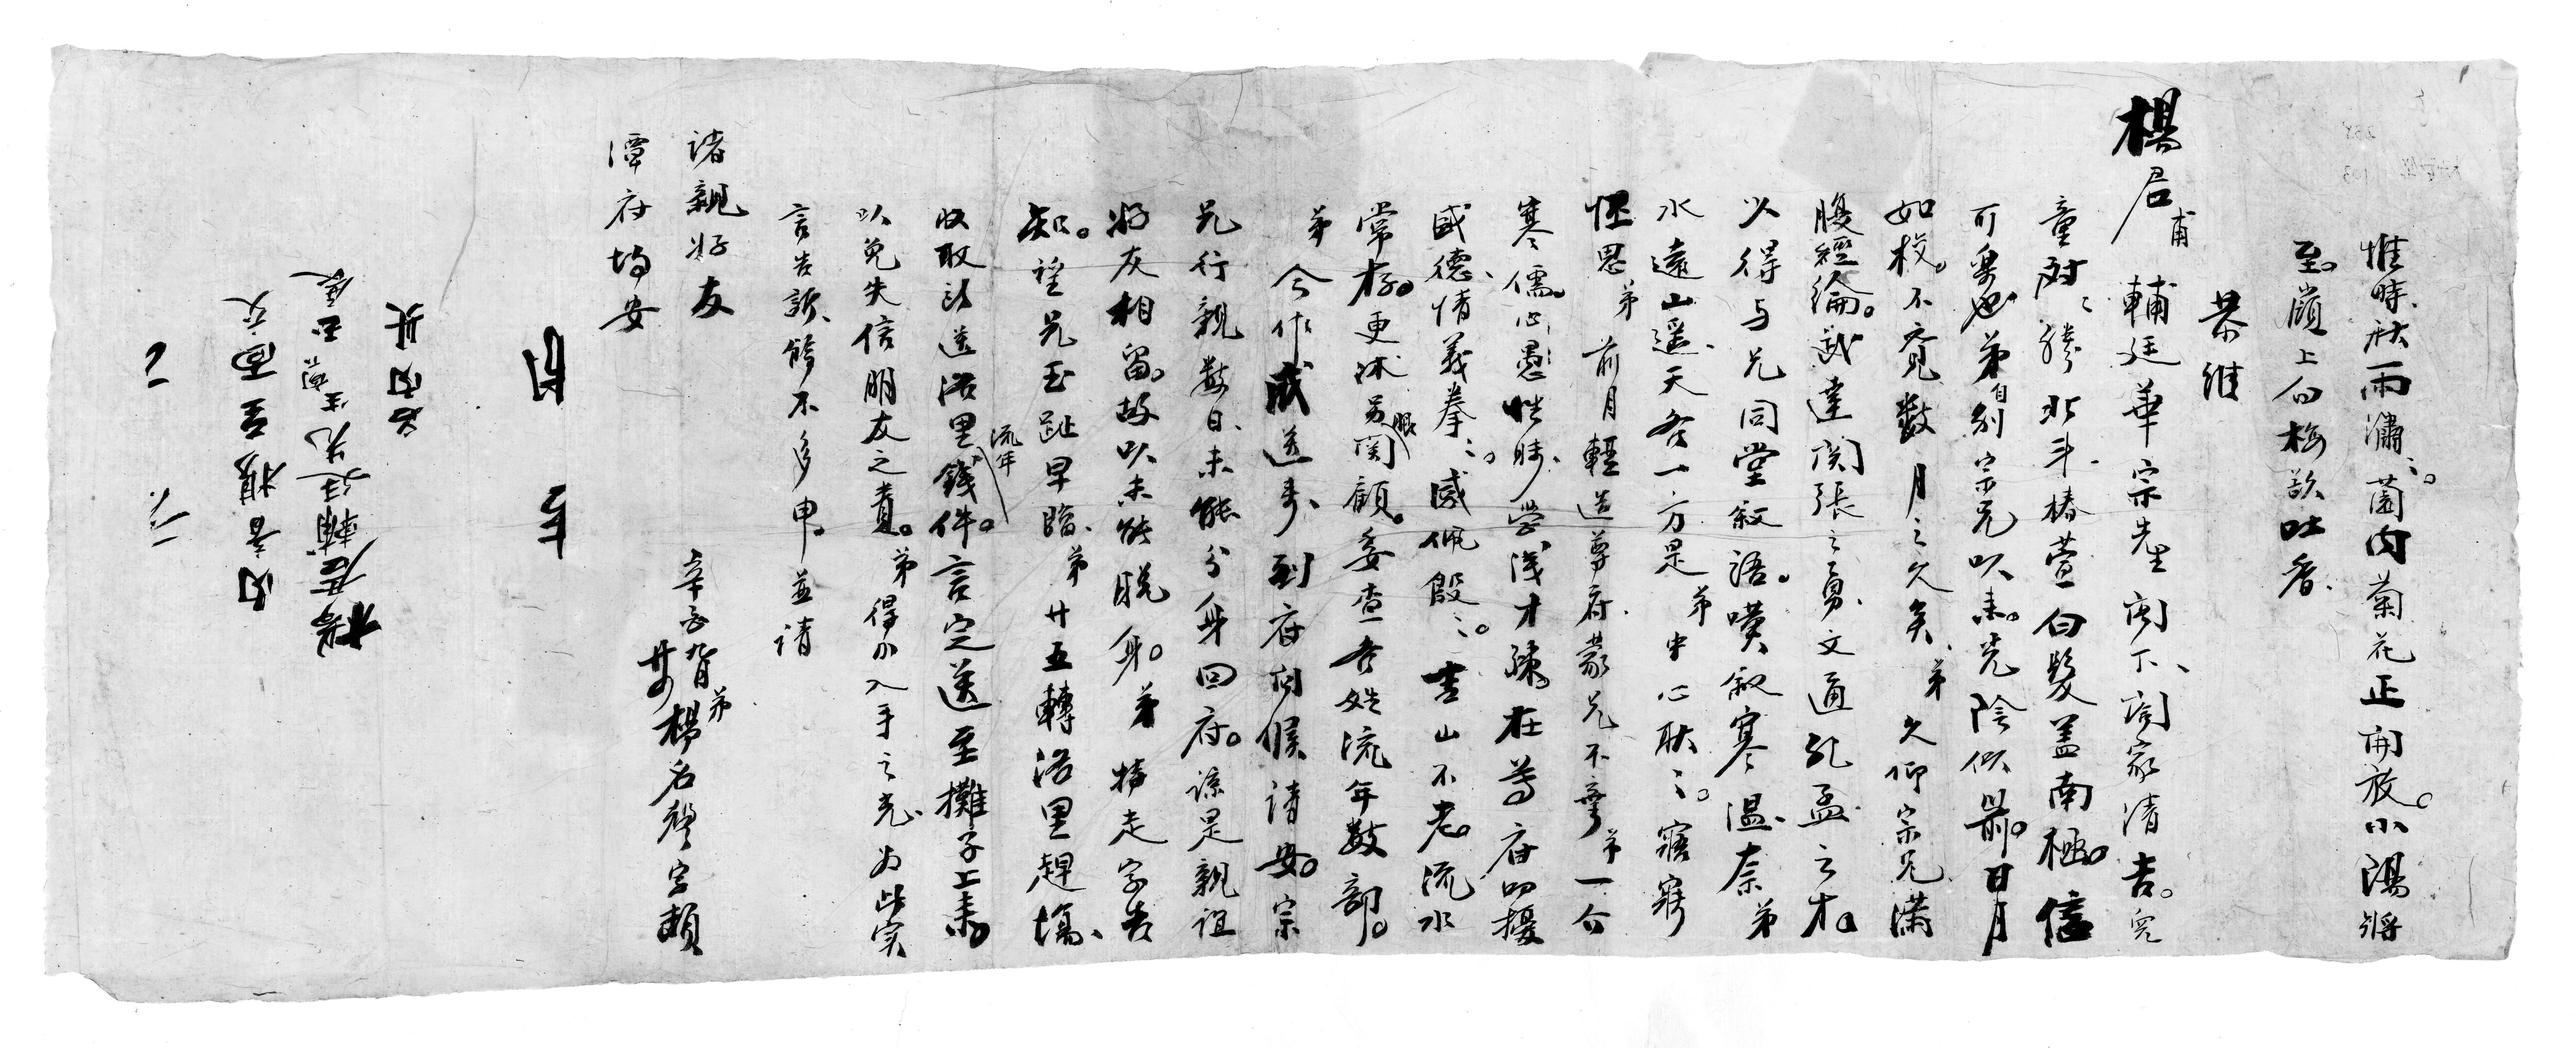 惟時秋雨瀟〻。園內菊花正開放。小陽將
至。嶺上白梅欲吐香。
恭維
楊君甫輔廷華宗先生閣下、閤家清吉。兒
童對〻勝北斗。椿萱白髮蓋南極。信
可樂也。弟自別宗兄以來。光陰似箭。日月
如梭。不覺數月之久矣、弟久仰宗兄滿
腹經綸。武達関張之勇、文通孔孟之才。
以得与兄同堂叙語。嘆叙寒溫、奈弟
水遠山遥、天各一方、是弟中心耿〻。寤寐
怪思弟前月輕造尊府、蒙兄不棄弟一介
寒儒。心愚性時、学淺才疎。在尊府叨擾
盛德、情義拳〻。感佩殷〻。青山不老。流水
常存。更沐另眼関顧。委查各姓流年數部。
弟今作成送來到府問候請安。宗
兄行親數日、未能分身回府。諒是親誼
好友相留。故以未能脱身。弟特走字告
知。望兄玉趾早臨、弟廿五轉洛里趕場、
收取或送洛里流年錢件。言定送至攤子上來。
以免失信朋友之責。弟得小入手之光、为此实
言告訴、餘不多申。並請
諸親好友
潭府均安
辛亥九月廿四弟楊名声字頼
月
内書親呈面交
楊君輔廷先生宗兄展
名内具